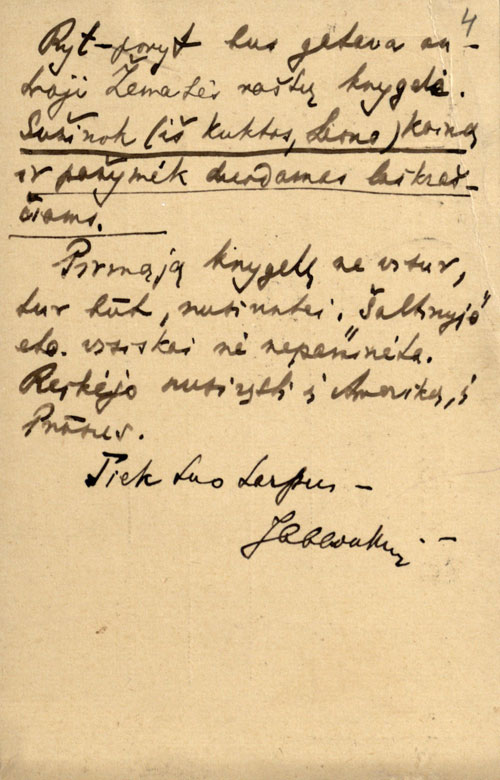 4
Ryt-poryt bus gatava an-
troji Žematės raštų knygelė.
Sužinok (iš Kuktos, Leono) kainą
ir pažymėk duodamas laikraš-
čiams.
Pirmąją knygelę ne visur,
tur būt, nusiuntei. „Šaltinyj”
etc. visiškai ne nepaminėta.
Reikėjo nusiųsti į Ameriką, į
Prūsus.
Tiek tuo tarpu —